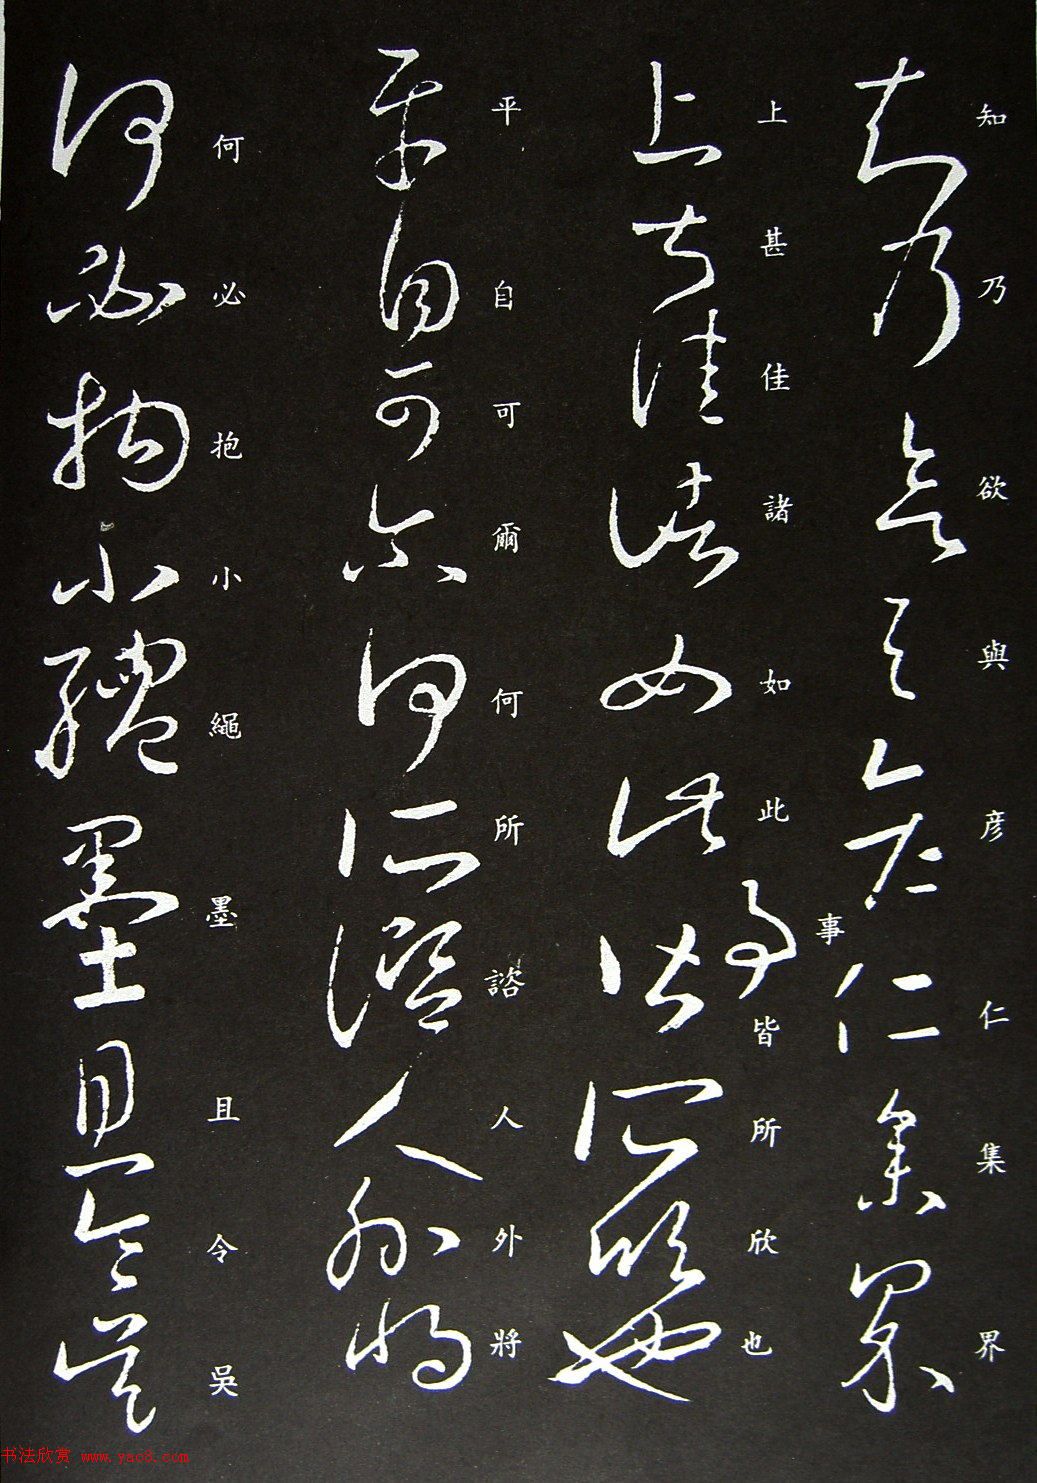 知乃欲與彦仁集界
上甚佳諸如此事皆所欣也
平自可爾何所諮人外將
何必抱小繩墨且令吳
书法欣赏 www.yac8.com